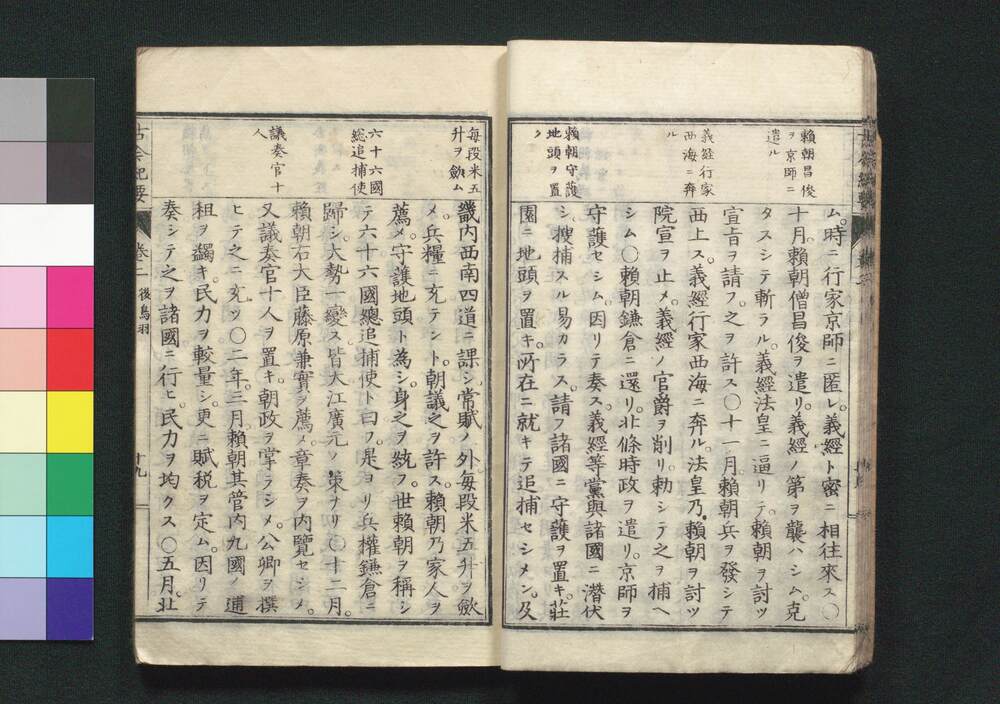 賴朝昌俊
ヲ京師ニ
遣ル
義經行家
西海ニ奔
ル
賴朝守護
地頭ヲ置
ク
ム。時ニ行家京師ニ匿レ。義經ト密ニ相往來ス〇
十月。賴朝僧昌俊ヲ遣リ。義經ノ第ヲ襲ハシム。克
タスシテ斬ラル。義經法皇ニ逼リテ。賴朝ヲ討ツ
宣旨ヲ請フ。之ヲ許ス〇十一月。賴朝兵ヲ發シテ
西上ス。義經行家西海ニ奔ル。法皇乃。賴朝ヲ討ツ
院宣ヲ止メ。義經ノ官爵ヲ削リ。勅シテ之ヲ捕ヘ
シム〇賴朝鎌倉ニ還リ。北條時政ヲ遣リ。京師ヲ
守護セシム。因リテ奏ス。義經等黨與諸國ニ潛伏
シ。搜捕スル易カラス。請フ諸國ニ守護ヲ置キ。莊
園ニ地頭ヲ置キ。所在ニ就キテ追捕セシメン。及
每段米五
升ヲ歛ム
六十六國
總追捕使
議奏官十
人
畿内西南四道ニ課シ。常賦ノ外。每段米五升ヲ歛
メ。兵糧ニ充テント。朝議之ヲ許ス。賴朝乃家人ヲ
薦メ。守護地頭ト為シ。身之ヲ統フ。世賴朝ヲ稱シ
テ六十六國總追捕使ト曰フ。是ヨリ兵權鎌倉ニ
歸シ。大勢一變ス。皆大江廣元ノ策ナリ〇十二月。
賴朝右大臣藤原兼實ヲ薦メ。章奏ヲ内覽セシメ。
又議奏官十人ヲ置キ。朝政ヲ掌ラシメ。公卿ヲ撰
ヒテ之ニ充ツ〇二年。三月。賴朝其管内九國ノ逋
租ヲ蠲キ。民力ヲ較量シ。更ニ賦税ヲ定ム。因リテ
奏シテ之ヲ諸國ニ行ヒ。民力ヲ均クス〇五月。北
古今紀要
卷二
後鳥羽
十九